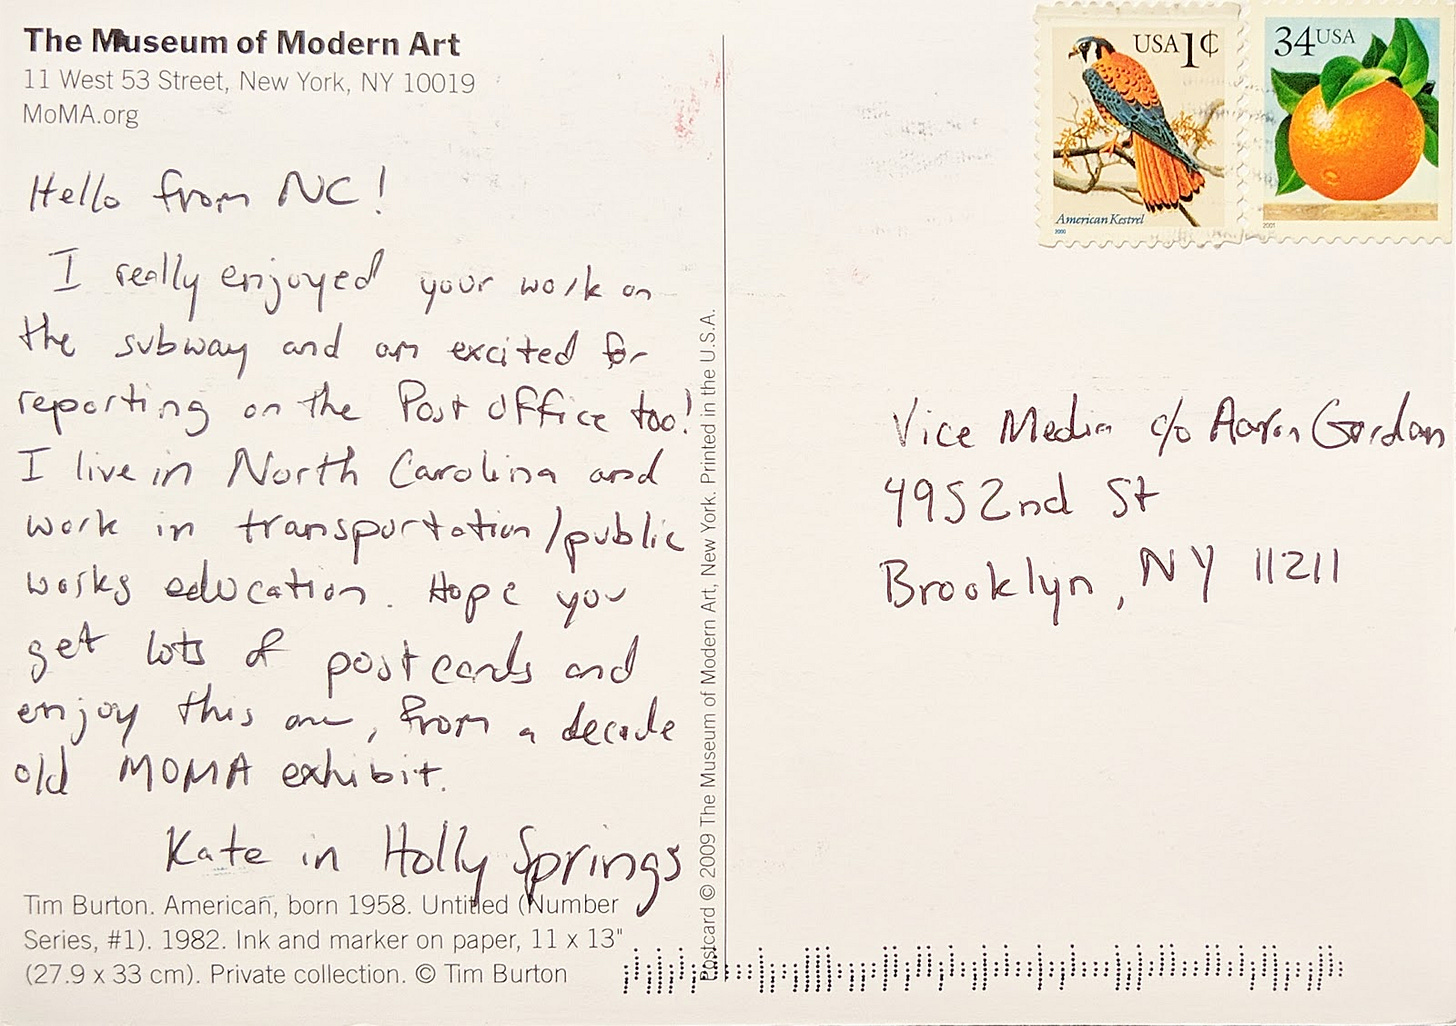 The Museum of Modern Art
11 West 53 Street, New York, NY 10019
MoMA.org
Hello from NC!
I really enjoyed your work on
the subway and am excited for
reporting on the Post Office too!
I live in North Carolina and
work in transportation/public
works education. Hope you
get lots of postcards and
enjoy this one, from a decade
old MOMA exhibit.
Kate in Holly Springs
Tim Burton. American, born 1958. Untitled (Number
Series, #1). 1982. Ink and marker on paper, 11 x 13"
(27.9 x 33 cm). Private collection. © Tim Burton
Postcard © 2009 The Museum of Modern Art, New York. Printed in the U.S.A.
USA 1¢
American Kestrel
2000
34 USA
2001
Vice Media c/o Aaron Gordon
49 S 2nd St
Brooklyn, NY 11211